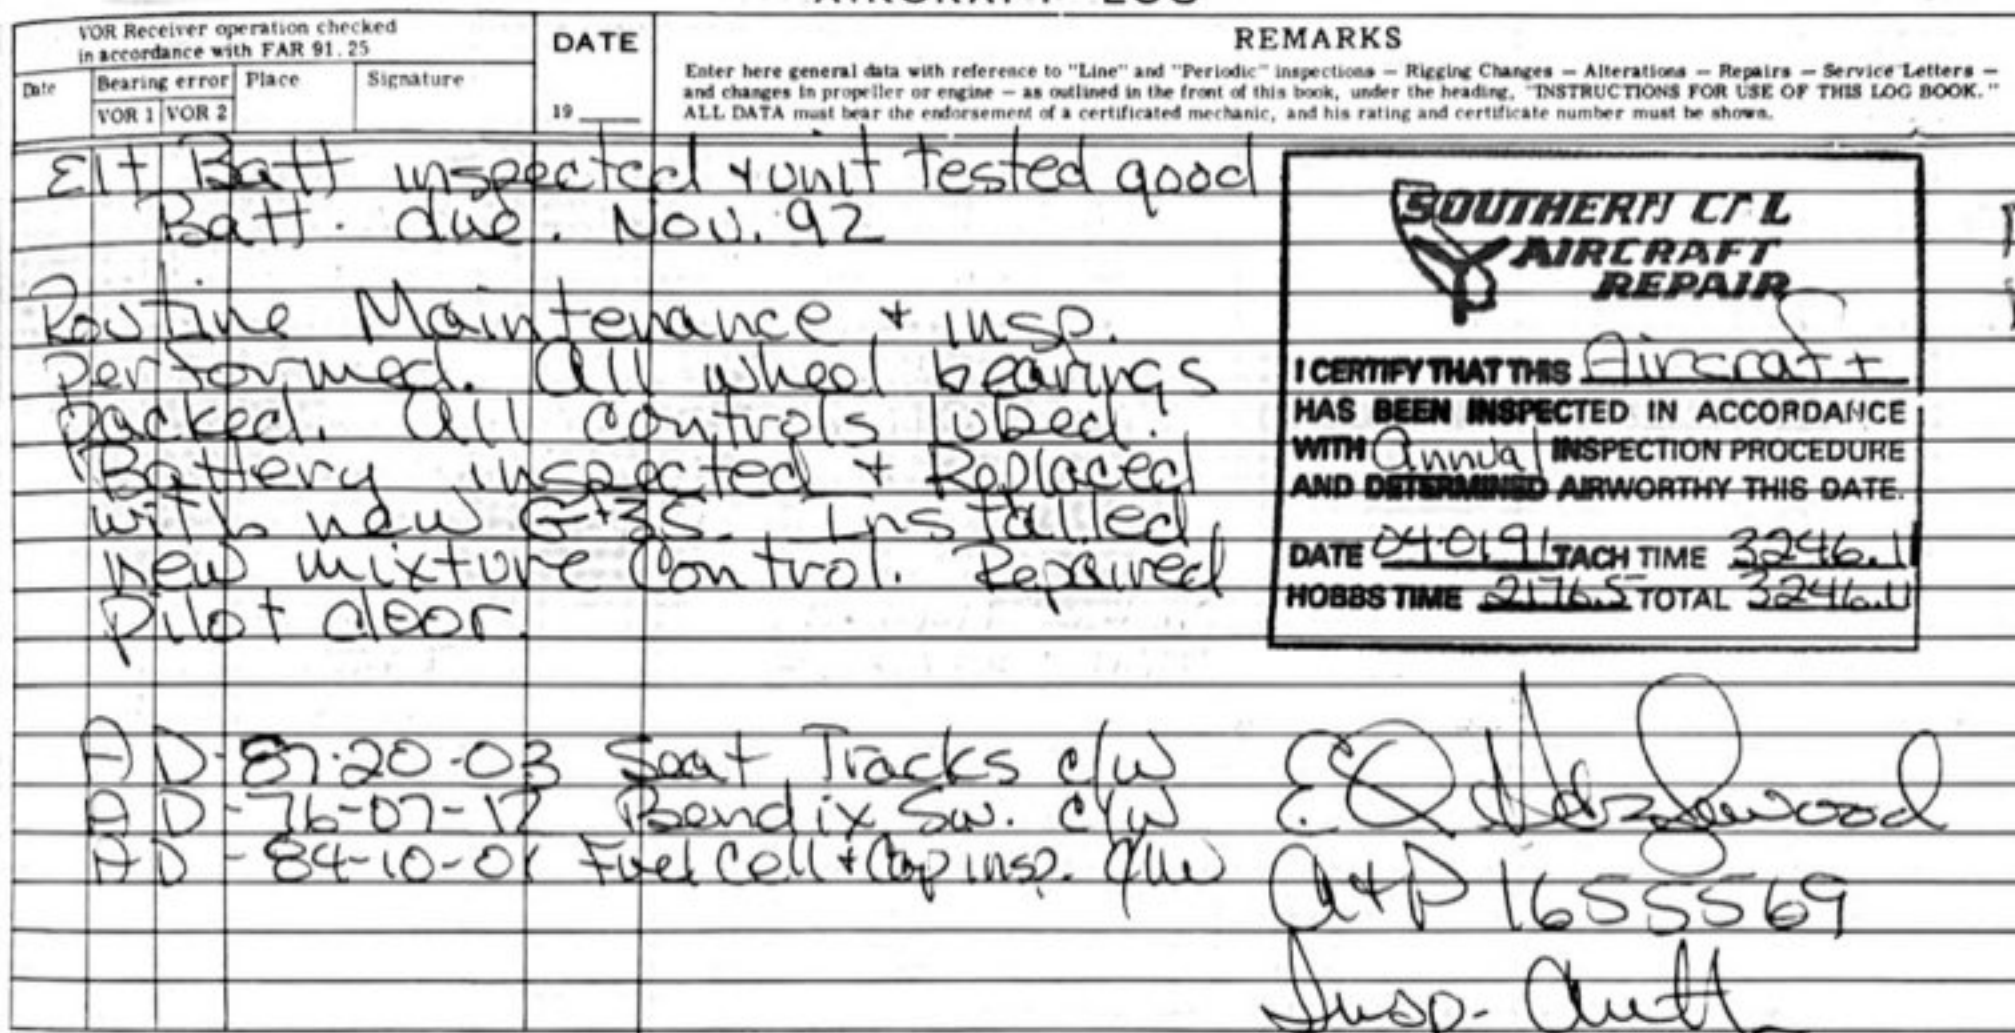 AIRCRAFT LOG
VOR Receiver operation checked
in accordance with FAR 91.25
Date
Bearing error
Place
Signature
VOR 1 VOR 2
DATE
19
REMARKS
Enter here general data with reference to "Line" and "Periodic" inspections — Rigging Changes — Alterations — Repairs — Service Letters —
and changes in propeller or engine — as outlined in the front of this book, under the heading, "INSTRUCTIONS FOR USE OF THIS LOG BOOK."
ALL DATA must bear the endorsement of a certificated mechanic, and his rating and certificate number must be shown.
Elt Batt inspected + unit tested good
Batt. due. Nov. 92
Routine Maintenance + insp.
performed. All wheel bearings
packed. All controls lubed.
Battery inspected + Replaced
with new G-35. Installed
new mixture control. Repaired
pilot door.
AD-87-20-03 Seat Tracks c/w
AD-76-07-12 Bendix Sw. c/w
AD-84-10-01 Fuel Cell + Cap insp. c/w
SOUTHERN CAL
AIRCRAFT
REPAIR
I CERTIFY THAT THIS Aircraft
HAS BEEN INSPECTED IN ACCORDANCE
WITH Annual INSPECTION PROCEDURE
AND DETERMINED AIRWORTHY THIS DATE.
DATE 04-01-91 TACH TIME 3246.11
HOBBS TIME 2176.5 TOTAL 3246.11
A+P 1655569
Insp. Auth